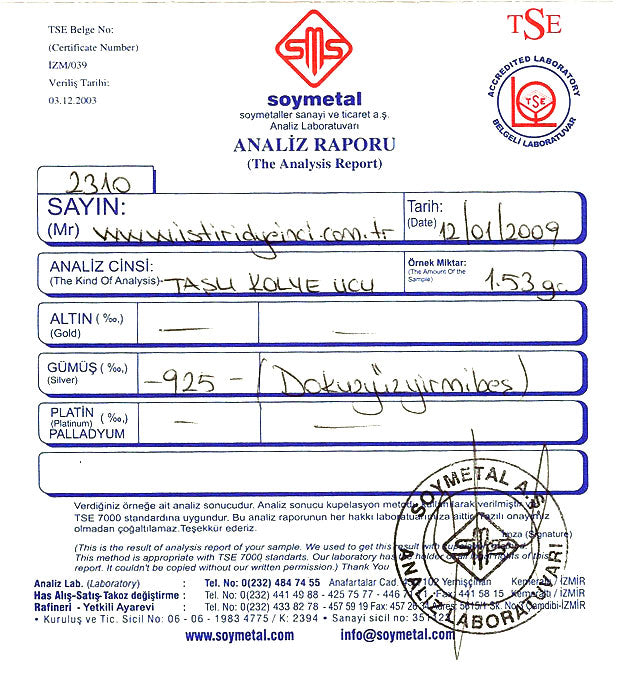 TSE Belge No:
(Certificate Number)
IZM/039
Veriliş Tarihi:
03.12.2003
SMS
soymetal
soymetaller sanayi ve ticaret a.ş.
Analiz Laboratuvarı
TSE
ACCREDITED LABORATORY
TSE
BELGELİ LABORATUVAR
ANALİZ RAPORU
(The Analysis Report)
2310
SAYIN:
(Mr) www.istiridyeinci.com.tr
Tarih:
(Date) 12/01/2009
ANALİZ CİNSİ:
(The Kind Of Analysis)- TAŞLI KOLYE UCU
Örnek Miktar:
(The Amount Of the
Sample) 1.53 gr.
ALTIN ( ‰ )
(Gold) — —
GÜMÜŞ ( ‰ )
(Silver) -925- (Dokuzyüzyirmibeş)
PLATİN ( ‰ )
(Platinum)
PALLADYUM — —
Verdiğiniz örneğe ait analiz sonucudur. Analiz sonucu kupelasyon metodu kullanılarak verilmiştir
TSE 7000 standardına uygundur. Bu analiz raporunun her hakkı laboratuarımıza aittir. Yazılı onayımız
olmadan çoğaltılamaz.Teşekkür ederiz.
İmza (Signature)
(This is the result of analysis report of your sample. We used to get this result with
This method is appropriate with TSE 7000 standarts. Our laboratory has the holder of all rights of this
report. It couldn't be copied without our written permission.) Thank You
SOYMETAL A.Ş.
ANALİZ LABORATUVARI
Analiz Lab. (Laboratory) : Tel. No: 0(232) 484 74 55 Anafartalar Cad. 102 Kemeraltı / İZMİR
Has Alış-Satış-Takoz değiştirme : Tel. No: 0(232) 441 49 88 - 425 75 77 - 446 Fax: 441 58 15 Kemeraltı / İZMİR
Rafineri - Yetkili Ayarevi : Tel. No: 0(232) 433 82 78 - 457 59 19 Fax: 457 Adres: 5615/1 Sk. No: Çamdibi-İZMİR
• Kuruluş ve Tic. Sicil No: 06 - 06 - 1983 4775 / K: 2394 • Sanayi sicil no:
www.soymetal.com info@soymetal.com